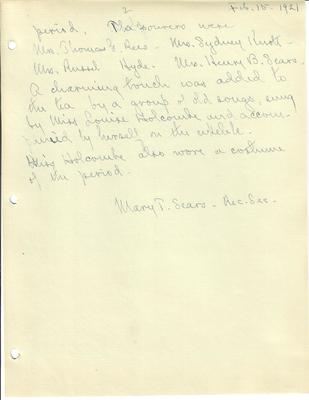 2
Feb. 15. 1921
period. The pourers were
Mrs. Thomas Rees - Mrs. Sydney
Mrs. Russel Hyde. Mrs. Henry B. Sears.
A charming touch was added to
the tea by a group of old songs, sung
by Miss Louise Holcombe and accom-
panied by herself on the
Miss Holcombe also wore a costume
of the period.
Mary T. Sears - Rec. Sec.